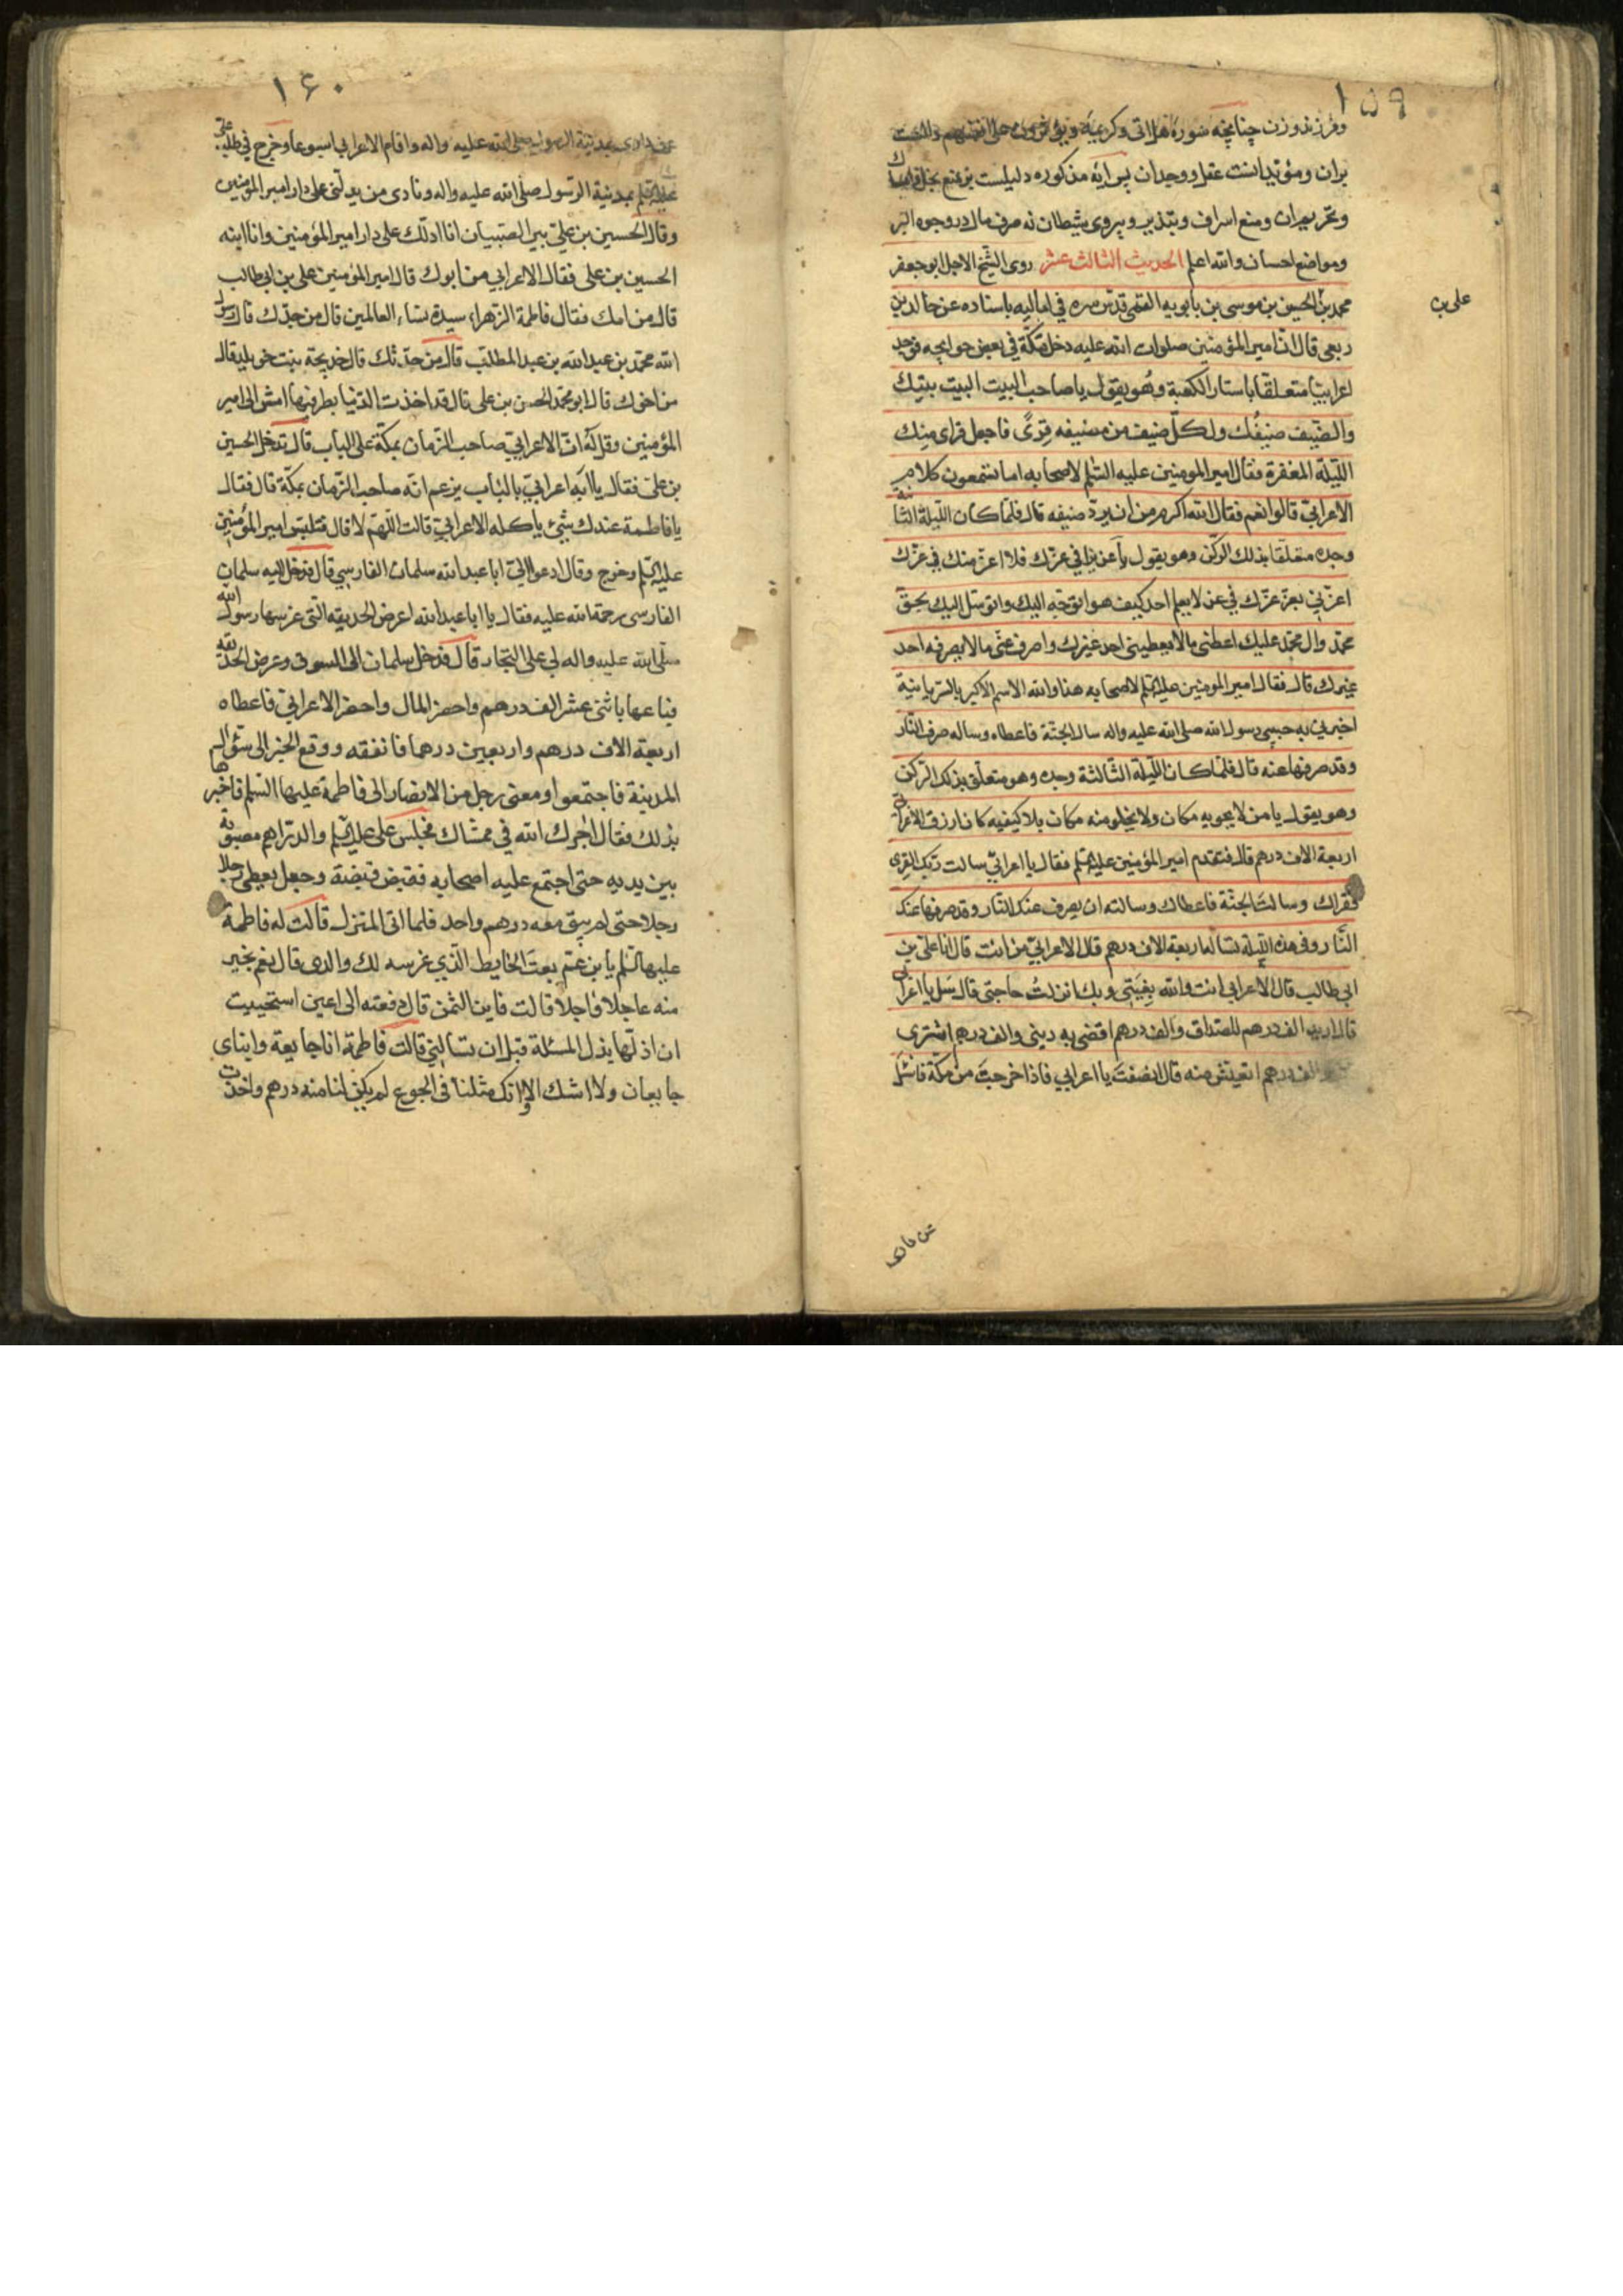 ١٥٩
وفرزند وزن چنانچه سوره هل اتی وکریمه ویؤثرون علی انفسهم دالست
بران ومؤید انست عقل ووجدان پس آیه مذکوره دلیلست بر منع بخل وامساك
وتحریم ان ومنع اسراف وتبذیر وپیروی شیطان نه صرف مال در وجوه البر
ومواضع احسان والله اعلم الحدیث الثالث عشر روی الشیخ الاجل ابوجعفر
محمد بن الحسین بن موسی بن بابویه القمی قدس سره فی امالیه باسناده عن خالد بن
علی بن
ربعی قال ان امیر المؤمنین صلوات الله علیه دخل مکة فی بعض حوایجه فوجد
اعرابیا متعلقا باستار الکعبة وهو یقول یا صاحب البیت البیت بیتك
والضیف ضیفك ولکل ضیف من مضیفه قری فاجعل قرای منك
اللیلة المغفرة فقال امیر المومنین علیه السلم لاصحابه اما تسمعون کلام
الاعرابی قالوا نعم فقال الله اکرم من ان یرد ضیفه قال فلما کان اللیلة الثانیة
وجده متعلقا بذلك الرکن وهو یقول یا عزیزا فی عزك فلا اعز منك فی عزك
اعزنی بعز عزك فی عز لا یعلم احد کیف هو اتوجه الیك واتوسل الیك بحق
محمد وال محمد علیك اعطنی ما لا یعطینی احد غیرك واصرف عنی ما لا یصرفه احد
غیرك قال فقال امیر المومنین علیه السلم لاصحابه هذا والله الاسم الاکبر بالسریانیة
اخبرنی به حبیبی رسول الله صلی الله علیه واله ساله الجنة فاعطاه وساله صرف النار
وقد صرفها عنه قال فلما کان اللیلة الثالثة وجده وهو متعلق بذلك الرکن
وهو یقول یا من لا یحویه مکان ولا یخلو منه مکان بلا کیفیه کان ارزق الاعرابی
اربعة الاف درهم قال فتقدم امیر المؤمنین علیه السلم فقال یا اعرابی سالت ربك القری
فقراك وسالت الجنة فاعطاك وسالته ان یصرف عنك النار وقد صرفها عنك
النار وفی هذه اللیلة تساله اربعة الاف درهم قال الاعرابی من انت قال انا علی بن
ابی طالب قال الاعرابی انت والله بغیتی وبك انزلت حاجتی قال سل یا اعرابی
قال ارید الف درهم للصداق والف درهم اقضی به دینی والف درهم اشتری
والف درهم اتعیش منه قال انصفت یا اعرابی فاذا خرجت من مکة فاسئل
عن داری
١۶٠
عن داری بمدینة الرسول صلی الله علیه واله واقام الاعرابی اسبوعا وخرج فی طلب علی
علیه السلم بمدینة الرسول صلی الله علیه واله ونادی من یدلنی علی دار امیر المؤمنین
وقال الحسین بن علی بین الصبیان انا ادلك علی دار امیر المؤمنین وانا ابنه
الحسین بن علی فقال الاعرابی من ابوك قال امیر المؤمنین علی بن ابی طالب
قال من امك فقال فاطمة الزهراء سیدة نساء العالمین قال من جدك قال رسول
الله محمد بن عبد الله بن عبد المطلب قال من جدتك قال خدیجة بنت خویلد قال
من اخوك قال ابو محمد الحسن بن علی قال قد اخذت الدنیا بطرفیها امش الی امیر
المؤمنین وقل له ان الاعرابی صاحب الزمان بمکة علی الباب قال فدخل الحسین
بن علی فقال یا ابه اعرابی بالباب یزعم انه صاحب الزمان بمکة قال فقال
یا فاطمة عندك شیئ یاکله الاعرابی قالت اللهم لا قال فتلبس امیر المؤمنین
علیه السلم وخرج وقال ادعوا الی ابا عبد الله سلمان الفارسی قال فدخل الیه سلمان
الفارسی رحمة الله علیه فقال یا ابا عبد الله اعرض الحدیقه التی غرسها رسول الله
صلی الله علیه واله لی علی التجار قال فدخل سلمان الی السوق وعرض الحدیقه
فباعها باثنی عشر الف درهم واحضر المال واحضر الاعرابی فاعطاه
اربعة الاف درهم واربعین درهما فانفقه ووقع الخبر الی سؤال
المدینة فاجتمعوا ومعنی رجل من الانصار الی فاطمة علیها السلم فاخبرها
بذلك فقال اجرك الله فی ممشاك فجلس علی علیه السلم والدراهم مصبوبة
بین یدیه حتی اجتمع علیه اصحابه فقبض قبضة وجعل یعطی رجلا
رجلا حتی لم یبق معه درهم واحد فلما اتی المنزل قالت له فاطمة
علیها السلم یا بن عم بعت الحایط الذی غرسه لك والدی قال نعم بخیر
منه عاجلا واجلا قالت فاین الثمن قال دفعته الی اعین استحییت
ان اذلها بذل المسئلة قبل ان تسالنی قالت فاطمة انا جایعة وابنای
جایعان ولا اشك الا وانك مثلنا فی الجوع لم یکن لنا منه درهم واخذت